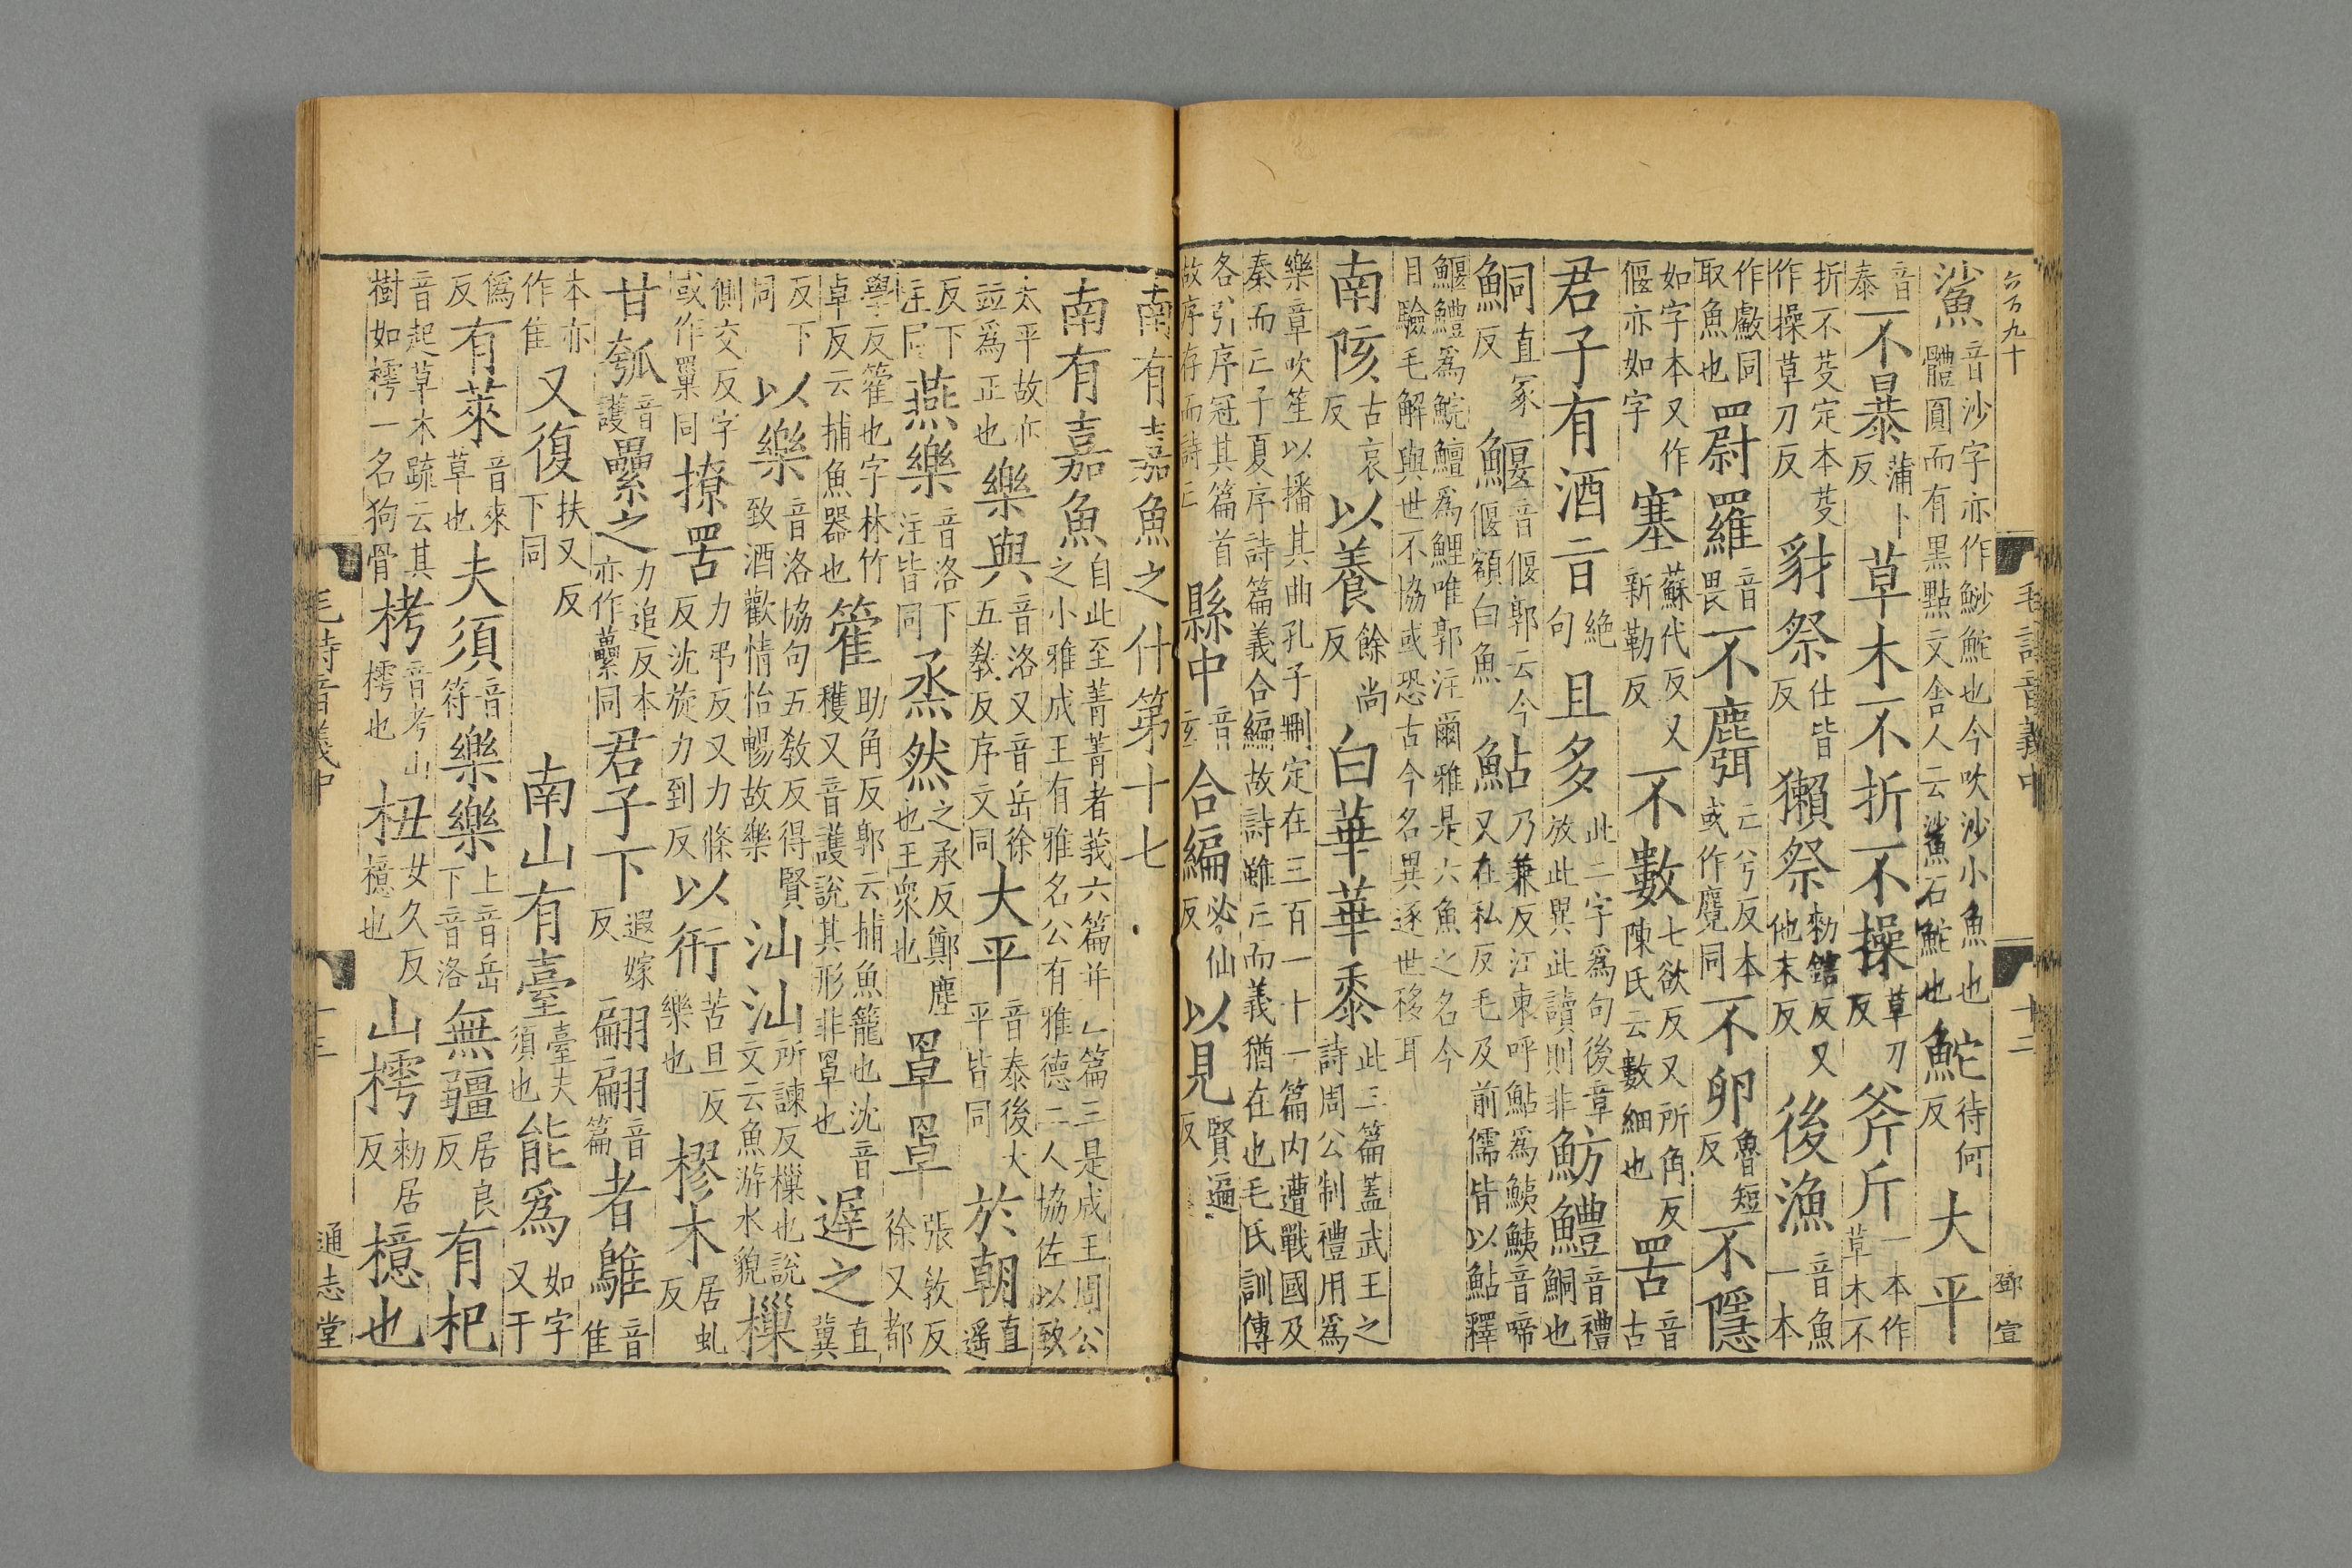 六百九十
毛詩音義中
十二
鄧宣
鯊音沙字亦作魦鮀也今吹沙小魚也體圓而有黑點文舍人云鯊石鮀也鮀待何反大平
音泰不暴蒲卜反草木不折不操草刀反斧斤一本作草木不
折不芟定本芟作操草刀反豺祭仕皆反獺祭勑鎋反又他末反後漁音魚一本
作䱷同取魚也罻羅音畏不麛亡兮反本或作麑同不卵魯短反不隱
如字本又作偃亦如字塞蘇代反又新勒反不數七欲反又所角反陳氏云數細也罟音古
君子有酒旨絶句且多此二字為句後章放此異此讀則非魴鱧音禮鮦也
鮦直冢反鰋音偃郭云今偃額白魚鮎乃兼反江東呼鮎為鮧鮧音啼又在私反毛及前儒皆以鮎釋
鰋鱧為鯇鱣為鯉唯郭注爾雅是六魚之名今目驗毛解與世不協或恐古今名異逐世移耳
南陔古哀反以養餘尚反白華華黍此三篇蓋武王之詩周公制禮用為
樂章吹笙以播其曲孔子刪定在三百一十一篇内遭戰國及秦而亡子夏序詩篇義合編故詩雖亡而義猶在也毛氏訓傳
各引序冠其篇首故序存而詩亡縣中音玄合編必仙反以見賢遍反
南有嘉魚之什第十七
南有嘉魚自此至菁菁者莪六篇并亡篇三是成王周公之小雅成王有雅名公有雅德二人協佐以致
太平故亦竝為正也樂與音洛又音岳徐五敎反序文同大平音泰後大平皆同於朝直遥
反下注同燕樂音洛下注皆同烝然之承反鄭塵也王衆也罩罩張敎反徐又都
學反籗也字林竹卓反云捕魚器也籗助角反郭云捕魚籠也沈音穫又音護説其形非罩也遟之直冀
反下同以樂音洛協句五敎反得賢致酒歡情怡暢故樂汕汕所諫反樔也説文云魚游水貌樔
側交反字或作罺同撩罟力弔反又力條反沈旋力到反以衎苦旦反樂也樛木居虬反
甘瓠音護纍之力追反本亦作虆同君子下遐嫁反翩翩音篇者鵻音隹
本亦作隹又復扶又反下同南山有臺臺夫須也能為如字又于
僞反有萊音來草也夫須音符樂樂上音岳下音洛無疆居良反有杞
音起草木疏云其樹如樗一名狗骨栲音考山樗也杻女久反檍也山樗勑居反檍也
毛詩音義中
十三
通志堂